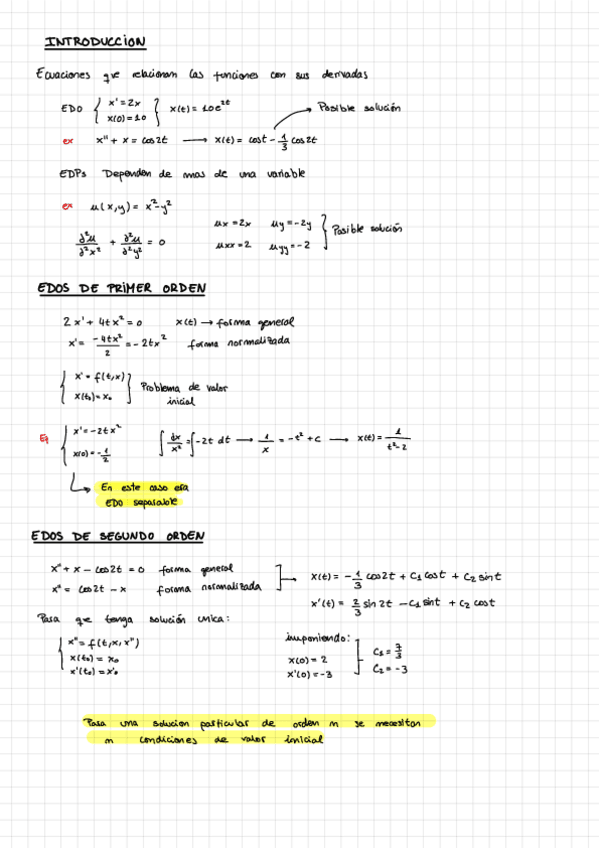 INTRODUCCION
Ecuaciones que relacionan las funciones con sus derivadas
EDO { x' = 2x x(0) = 10 } x(t) = 10e^2t → Posible solución
ex x'' + x = cos2t → x(t) = cost - 1/3 cos2t
EDPs Dependen de mas de una variable
ex u(x,y) = x²-y²
∂²u/∂²x² + ∂²u/∂²y² = 0 ux = 2x uy = -2y uxx = 2 uyy = -2 } Posible solución
EDOS DE PRIMER ORDEN
2x' + 4tx² = 0 x(t) → forma general
x' = -4tx²/2 = -2tx² forma normalizada
{ x' = f(t,x) x(t₀) = x₀ } Problema de valor inicial
Ej { x' = -2tx² x(0) = -1/2 ∫ dx/x² = ∫ -2t dt → 1/x = -t² + c → x(t) = 1/t²-2
En este caso era
EDO separable
EDOS DE SEGUNDO ORDEN
x'' + x - cos2t = 0 forma general
x'' = cos2t - x forma normalizada
x(t) = -1/3 cos2t + C₁ cost + C₂ sint
x'(t) = 2/3 sin 2t - C₁ sint + C₂ cost
Para que tenga solución unica:
{ x'' = f(t,x,x'')
x(t₀) = x₀
x'(t₀) = x'₀
imponiendo:
x(0) = 2
x'(0) = -3
C₁ = 7/3
C₂ = -3
Para una solucion particular de orden n se necesitan
n condiciones de valor inicial